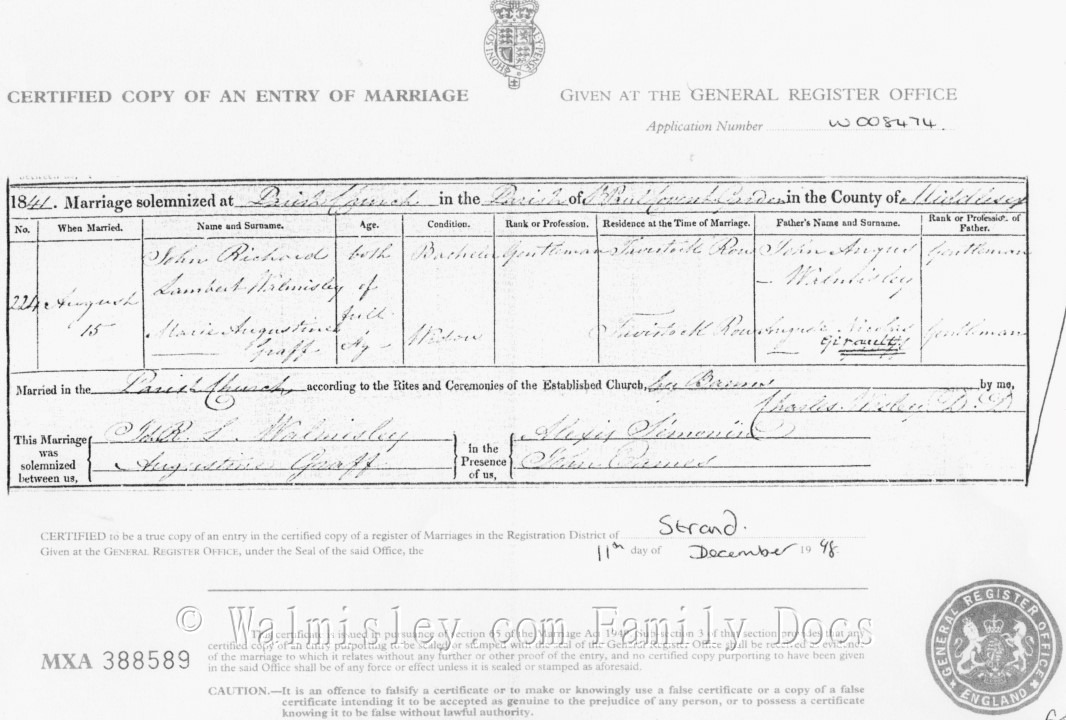 CERTIFIED COPY OF AN ENTRY OF MARRIAGE
GIVEN AT THE GENERAL REGISTER OFFICE
Application Number W008474.
1841. Marriage solemnized at Parish Church in the Parish of St Paul Covent Garden in the County of Middlesex
No. When Married. Name and Surname. Age. Condition. Rank or Profession. Residence at the Time of Marriage. Father's Name and Surname. Rank or Profession of Father.
John Richard both Bachelor Gentleman Tavistock Row John Angus Gentleman
224 August Lambert Walmisley of Walmisley
15 full
Marie Augustine Widow Tavistock Row Auguste Nicolas Gentleman
Graff Ag- Girault
Married in the Parish Church according to the Rites and Ceremonies of the Established Church, by Banns by me,
Charles D.D
This Marriage was solemnized between us, Jno. R. L. Walmisley in the Presence of us, Alexis Simonin
Augustine Graff John Eames
CERTIFIED to be a true copy of an entry in the certified copy of a register of Marriages in the Registration District of Strand.
Given at the GENERAL REGISTER OFFICE, under the Seal of the said Office, the 11th day of December 19 98
© Walmisley.com Family Docs
This certificate is issued in pursuance of section 65 of the Marriage Act 1949. Sub-section 3 of that section provides that any
certified copy of an entry purporting to be sealed or stamped with the seal of the General Register Office shall be received as evidence
of the marriage to which it relates without any further or other proof of the entry, and no certified copy purporting to have been given
in the said Office shall be of any force or effect unless it is sealed or stamped as aforesaid.
MXA 388589
CAUTION.—It is an offence to falsify a certificate or to make or knowingly use a false certificate or a copy of a false
certificate intending it to be accepted as genuine to the prejudice of any person, or to possess a certificate
knowing it to be false without lawful authority.
GENERAL REGISTER OFFICE
ENGLAND